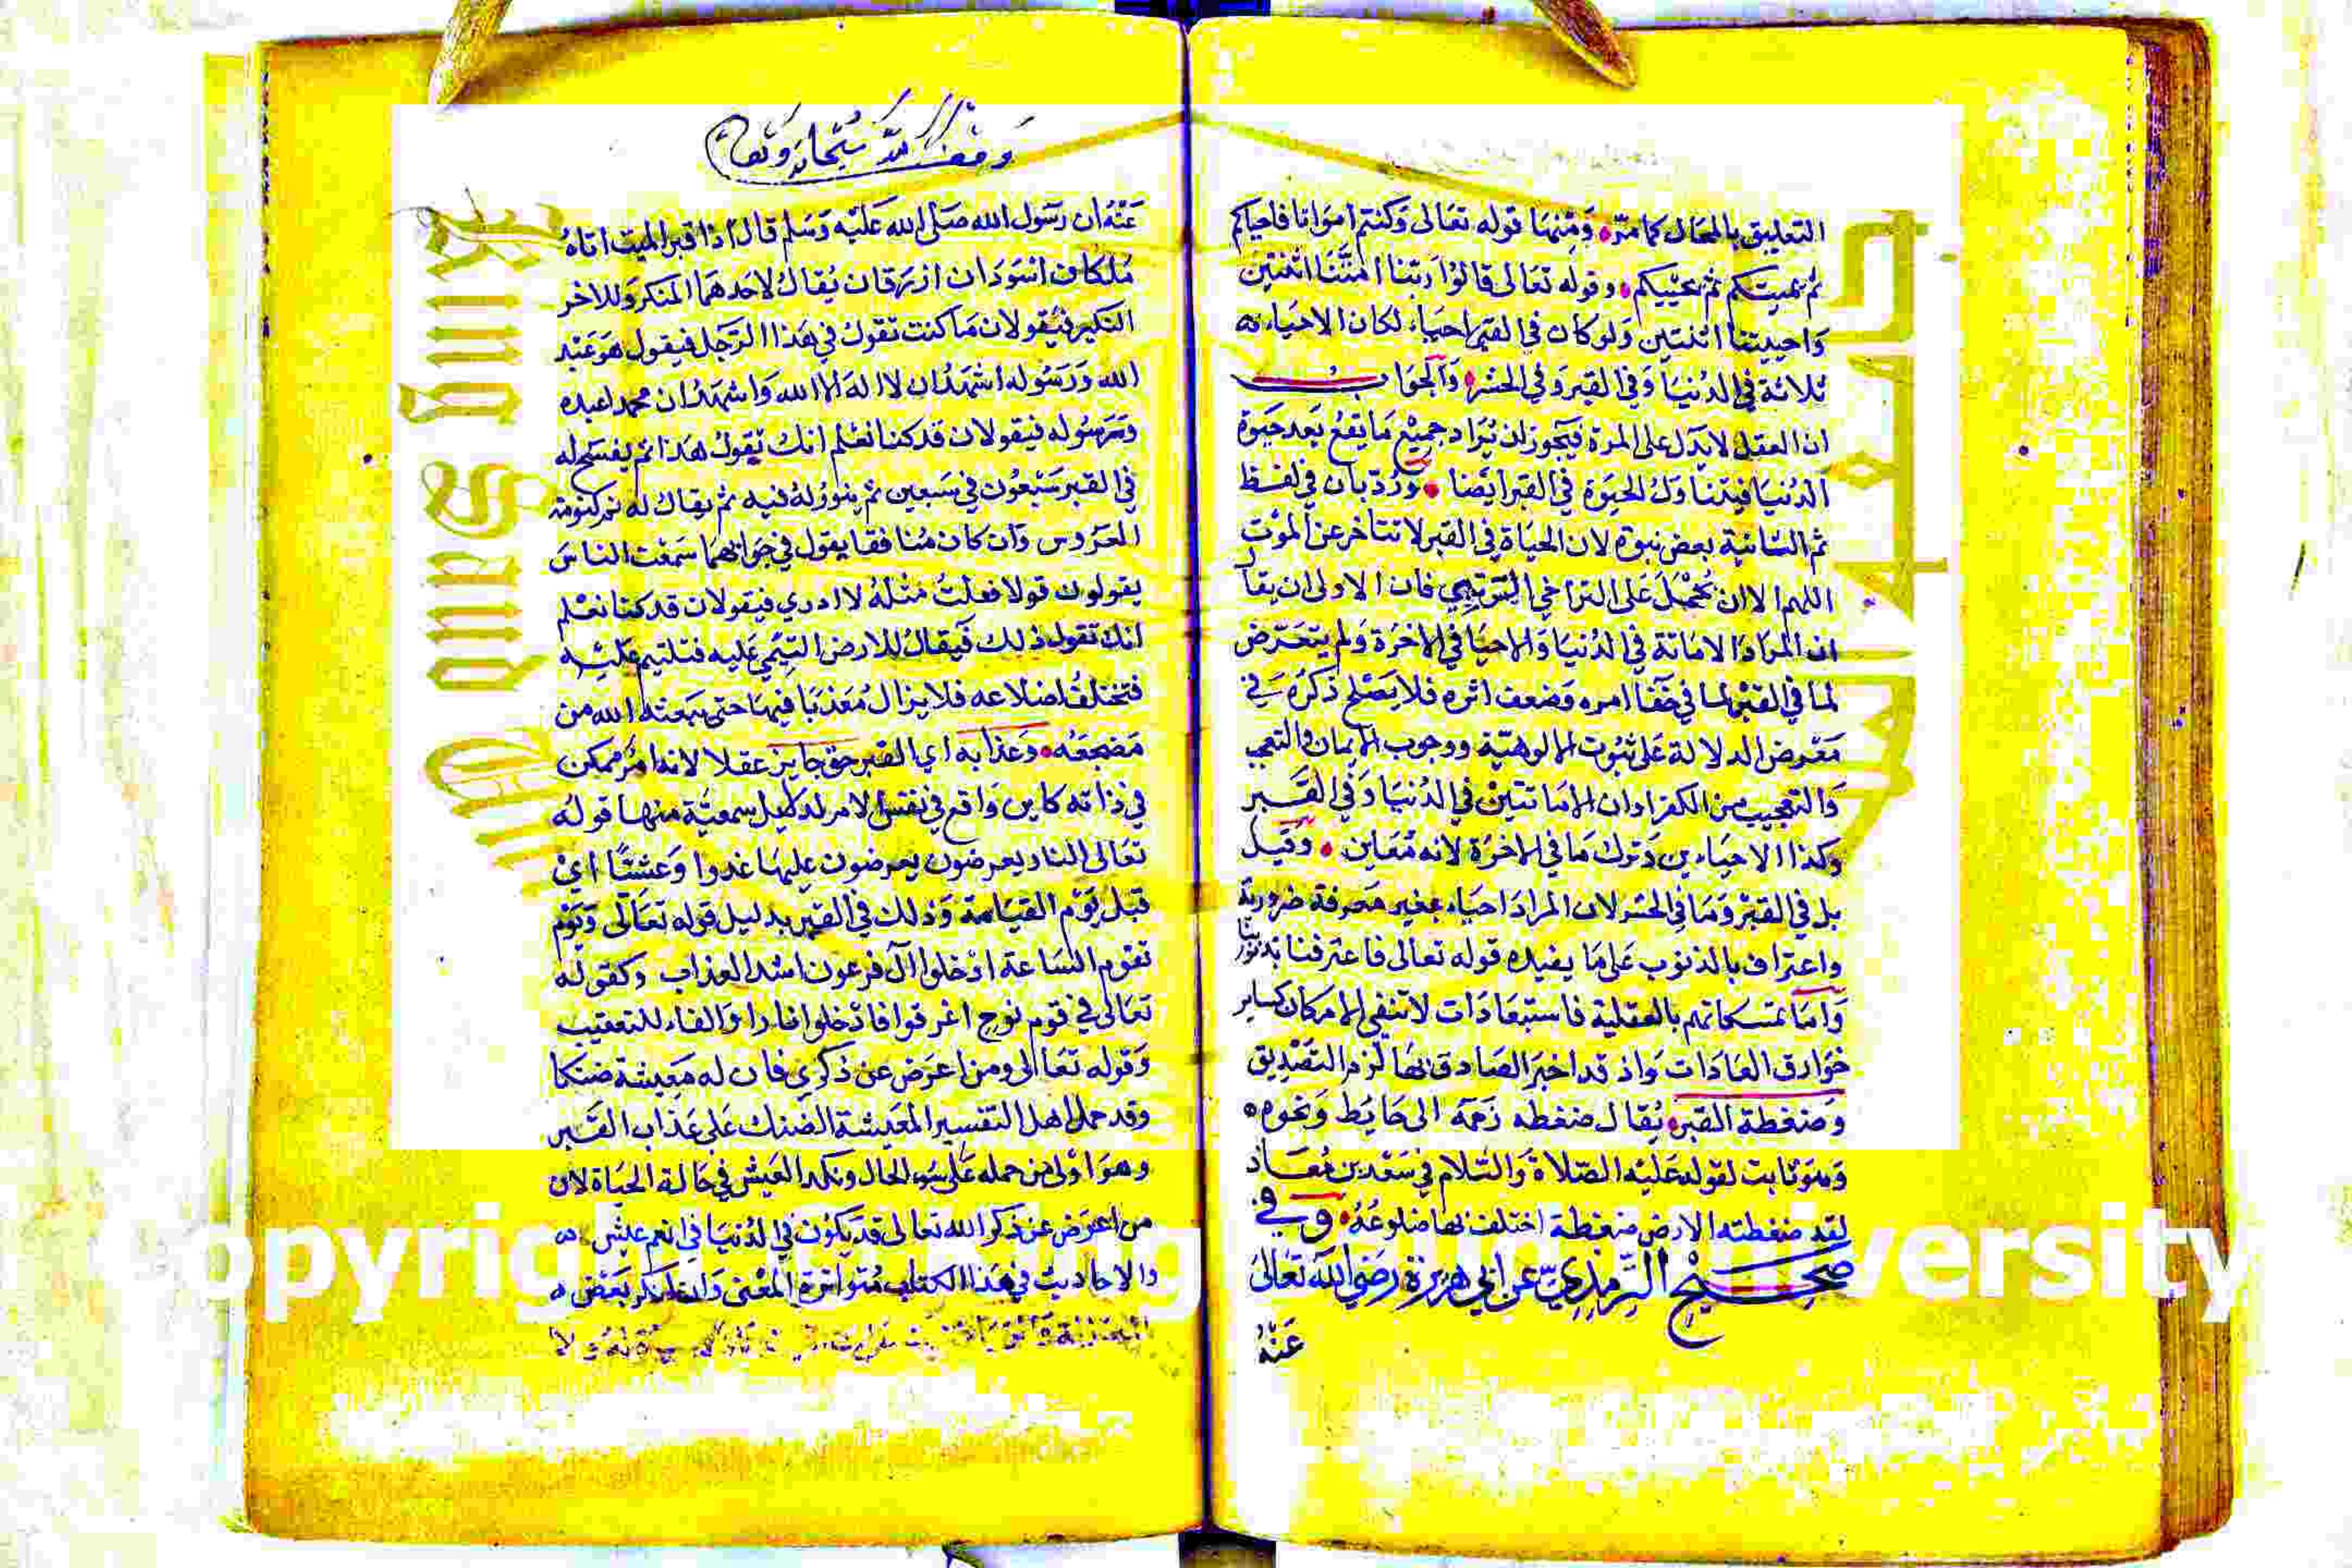 التعليق بالمحال كما مرّ ومنها قوله تعالى وكنتم امواتا فاحياكم
ثم يميتكم ثم يحييكم وقوله تعالى قالوا ربنا امتنا اثنتين
واحييتنا اثنتين ولو كان في القبر احياء لكان الاحياء
ثلاثة في الدنيا وفي القبر وفي الحشر والجواب
ان العقل لا يدل على المرة فيجوز ان يراد جميع ما يقع بعد حيوة
الدنيا فيتناول الحيوة في القبر ايضا ورد بان في لفظ
ثم الثانية بعض نبوة لان الحياة في القبر لا تتاخر عن الموت
اللهم الا ان يحمل على التراخي الرتبي فان الاولى ان يقال
ان المراد الاماتة في الدنيا والاحيا في الاخرة ولم يتعرض
لما في القبر لما في خفا امره وضعف اثره فلا يصلح ذكره في
معرض الدلالة على ثبوت الالوهية ووجوب الايمان والتعجب
والتعجيب من الكفر اوان الاماتتين في الدنيا وفي القبر
وكذا الاحياءين وترك ما في الاخرة لانه معاين وقيل
بل في القبر وما في الحشر لان المراد احياء بغير معرفة ضرورية
واعتراف بالذنوب على ما يفيده قوله تعالى فاعترفنا بذنوبنا
واما تمسكاتهم بالعقلية فاستبعادات لا تنفي الامكان كساير
خوارق العادات واذ قد اخبر الصادق بها لزم التصديق
وضغطة القبر يقال ضغطه زحمه الى حايط ونحوه
وهو ثابت لقوله عليه الصلاة والسلام في سعد بن معاذ
لقد ضغطته الارض ضغطة اختلف بها ضلوعه وفي
صحيح الترمذي عن ابي هريرة رضي الله تعالى
عنه
عنه ان رسول الله صلى الله عليه وسلم قال اذا قبر الميت اتاه
ملكان اسودان ازرقان يقال لاحدهما المنكر وللاخر
النكير فيقولان ما كنت تقول في هذا الرجل فيقول هو عبد
الله ورسوله اشهد ان لا اله الا الله واشهد ان محمدا عبده
ورسوله فيقولان قد كنا نعلم انك تقول هذا ثم يفسح له
في القبر سبعون في سبعين ثم ينور له فيه ثم يقال له نم كنومة
العروس وان كان منافقا يقول في جوابهما سمعت الناس
يقولون قولا فقلت مثله لا ادري فيقولان قد كنا نعلم
انك تقول ذلك فيقال للارض التيمي عليه فتلتيم عليه
فتختلف اضلاعه فلا يزال معذبا فيها حتى يبعثه الله من
مضجعه وعذابه اي القبر حق جايز عقلا لانه امر ممكن
في ذاته كاين واقع في نفس الامر لدلايل سمعية منها قوله
تعالى النار يعرضون يعرضون عليها غدوا وعشيا اي
قبل يوم القيامة وذلك في القبر بدليل قوله تعالى ويوم
تقوم الساعة ادخلوا ال فرعون اشد العذاب وكقوله
تعالى في قوم نوح اغرقوا فادخلوا نارا والفاء للتعقيب
وقوله تعالى ومن اعرض عن ذكري فان له معيشة ضنكا
وقد حمل اهل التفسير المعيشة الضنك على عذاب القبر
وهو اولى من حمله على سوء الحال ونكد العيش في حالة الحياة لان
من اعرض عن ذكر الله تعالى قد يكون في الدنيا في انعم عيش
والاحاديث في هذا الكتاب متواترة المعنى ولنذكر بعض
جامعة الملك
King Saud Univ
Copyright © King Saud University